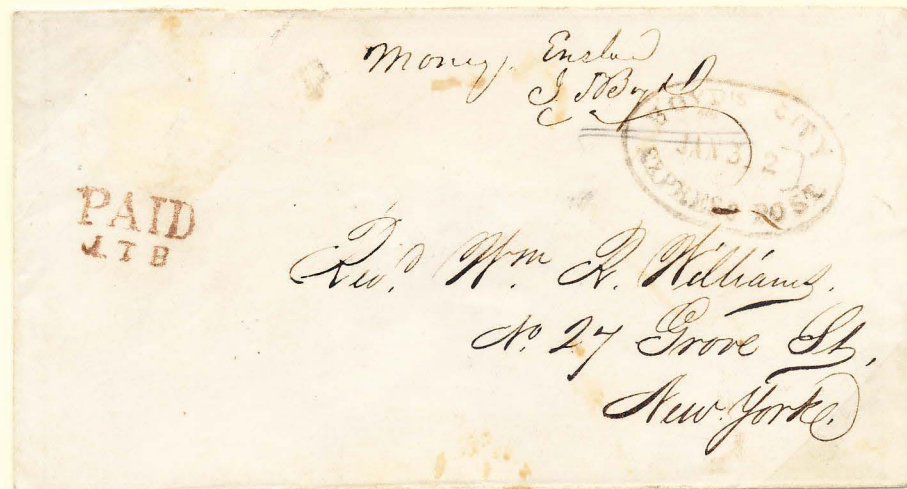 Money. Enslod
J T Boyd
BOYD'S CITY
JAN 3. 2
EXPRESS POST
PAID
J T B
Revd. Wm. R. Williams.
No. 27 Grove St,
New York.